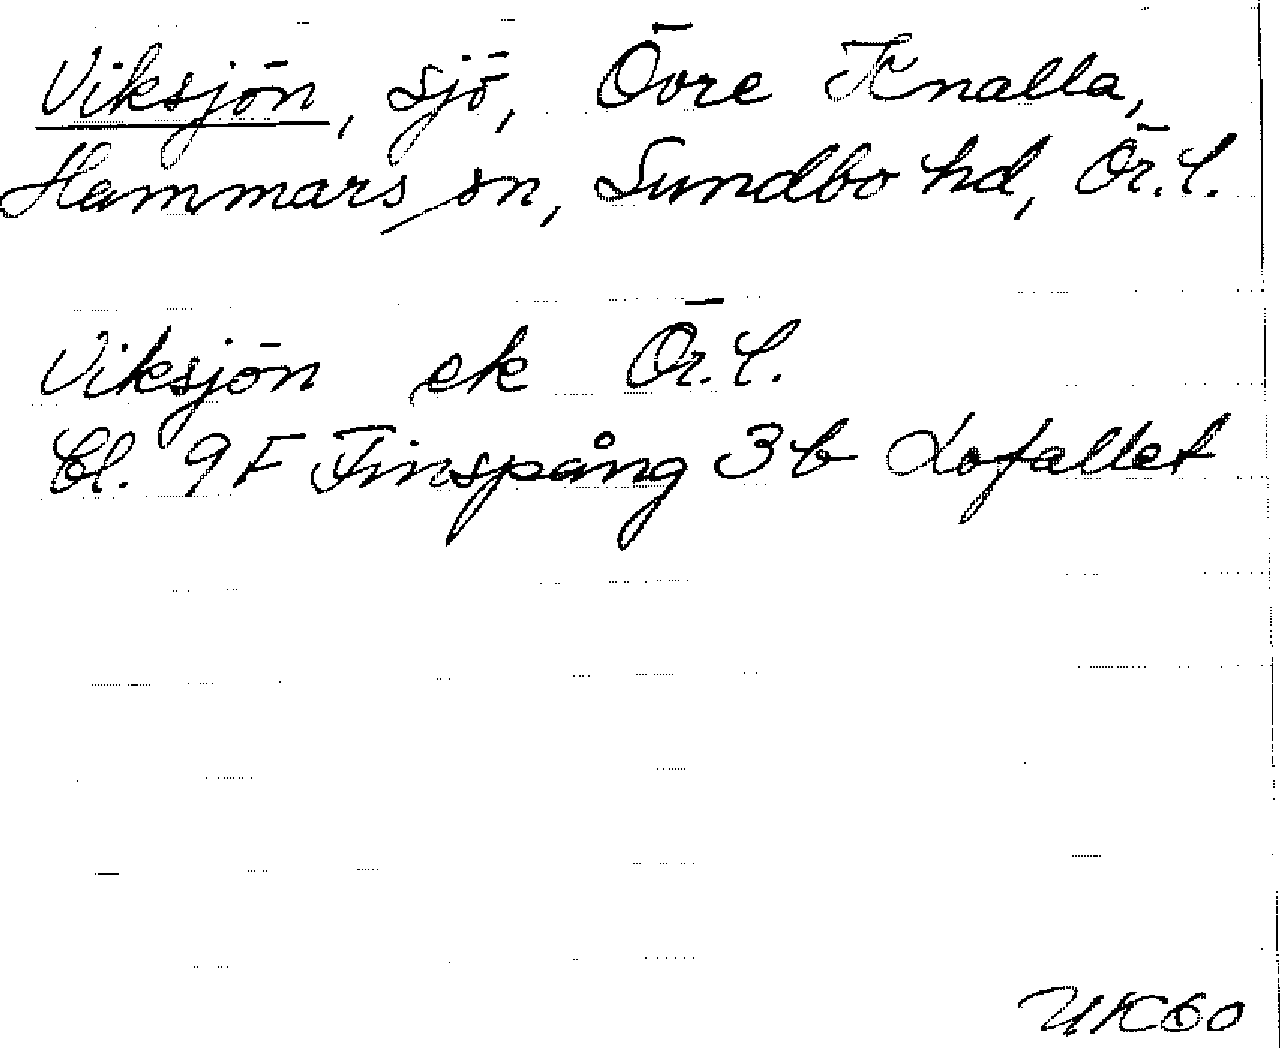 Viksjön, sjö, Övre Knalla,
Hammars sn, Sundbo hd, Ör.l.
Viksjön ek Ör.l.
Bl. 9F Finspång 3b Lofallet
UK60